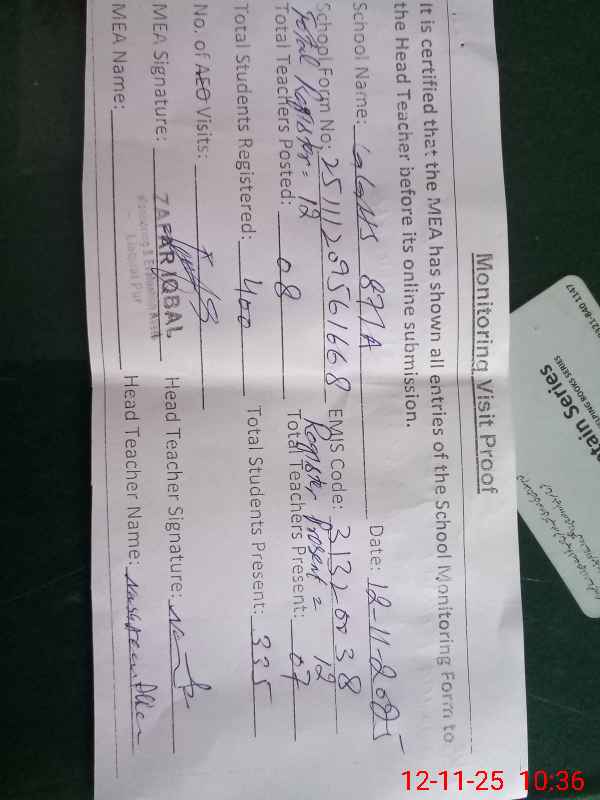 Monitoring Visit Proof
It is certified that the MEA has shown all entries of the School Monitoring Form to
the Head Teacher before its online submission.
School Name: 877A Date: 12-11-2025
School Form No: EMIS Code: 31320038
Total Register = 12 Register Present = 12
Total Teachers Posted: 08 Total Teachers Present: 07
Total Students Registered: 400 Total Students Present: 335
No. of AEO Visits:
MEA Signature: ZAFAR IQBAL Head Teacher Signature:
Monitoring & Evaluation Assistt
Liaqat Pur
MEA Name: Head Teacher Name:
0321-840 1147
tain Series
ELPING BOOKS SERIES
12-11-25 10:36